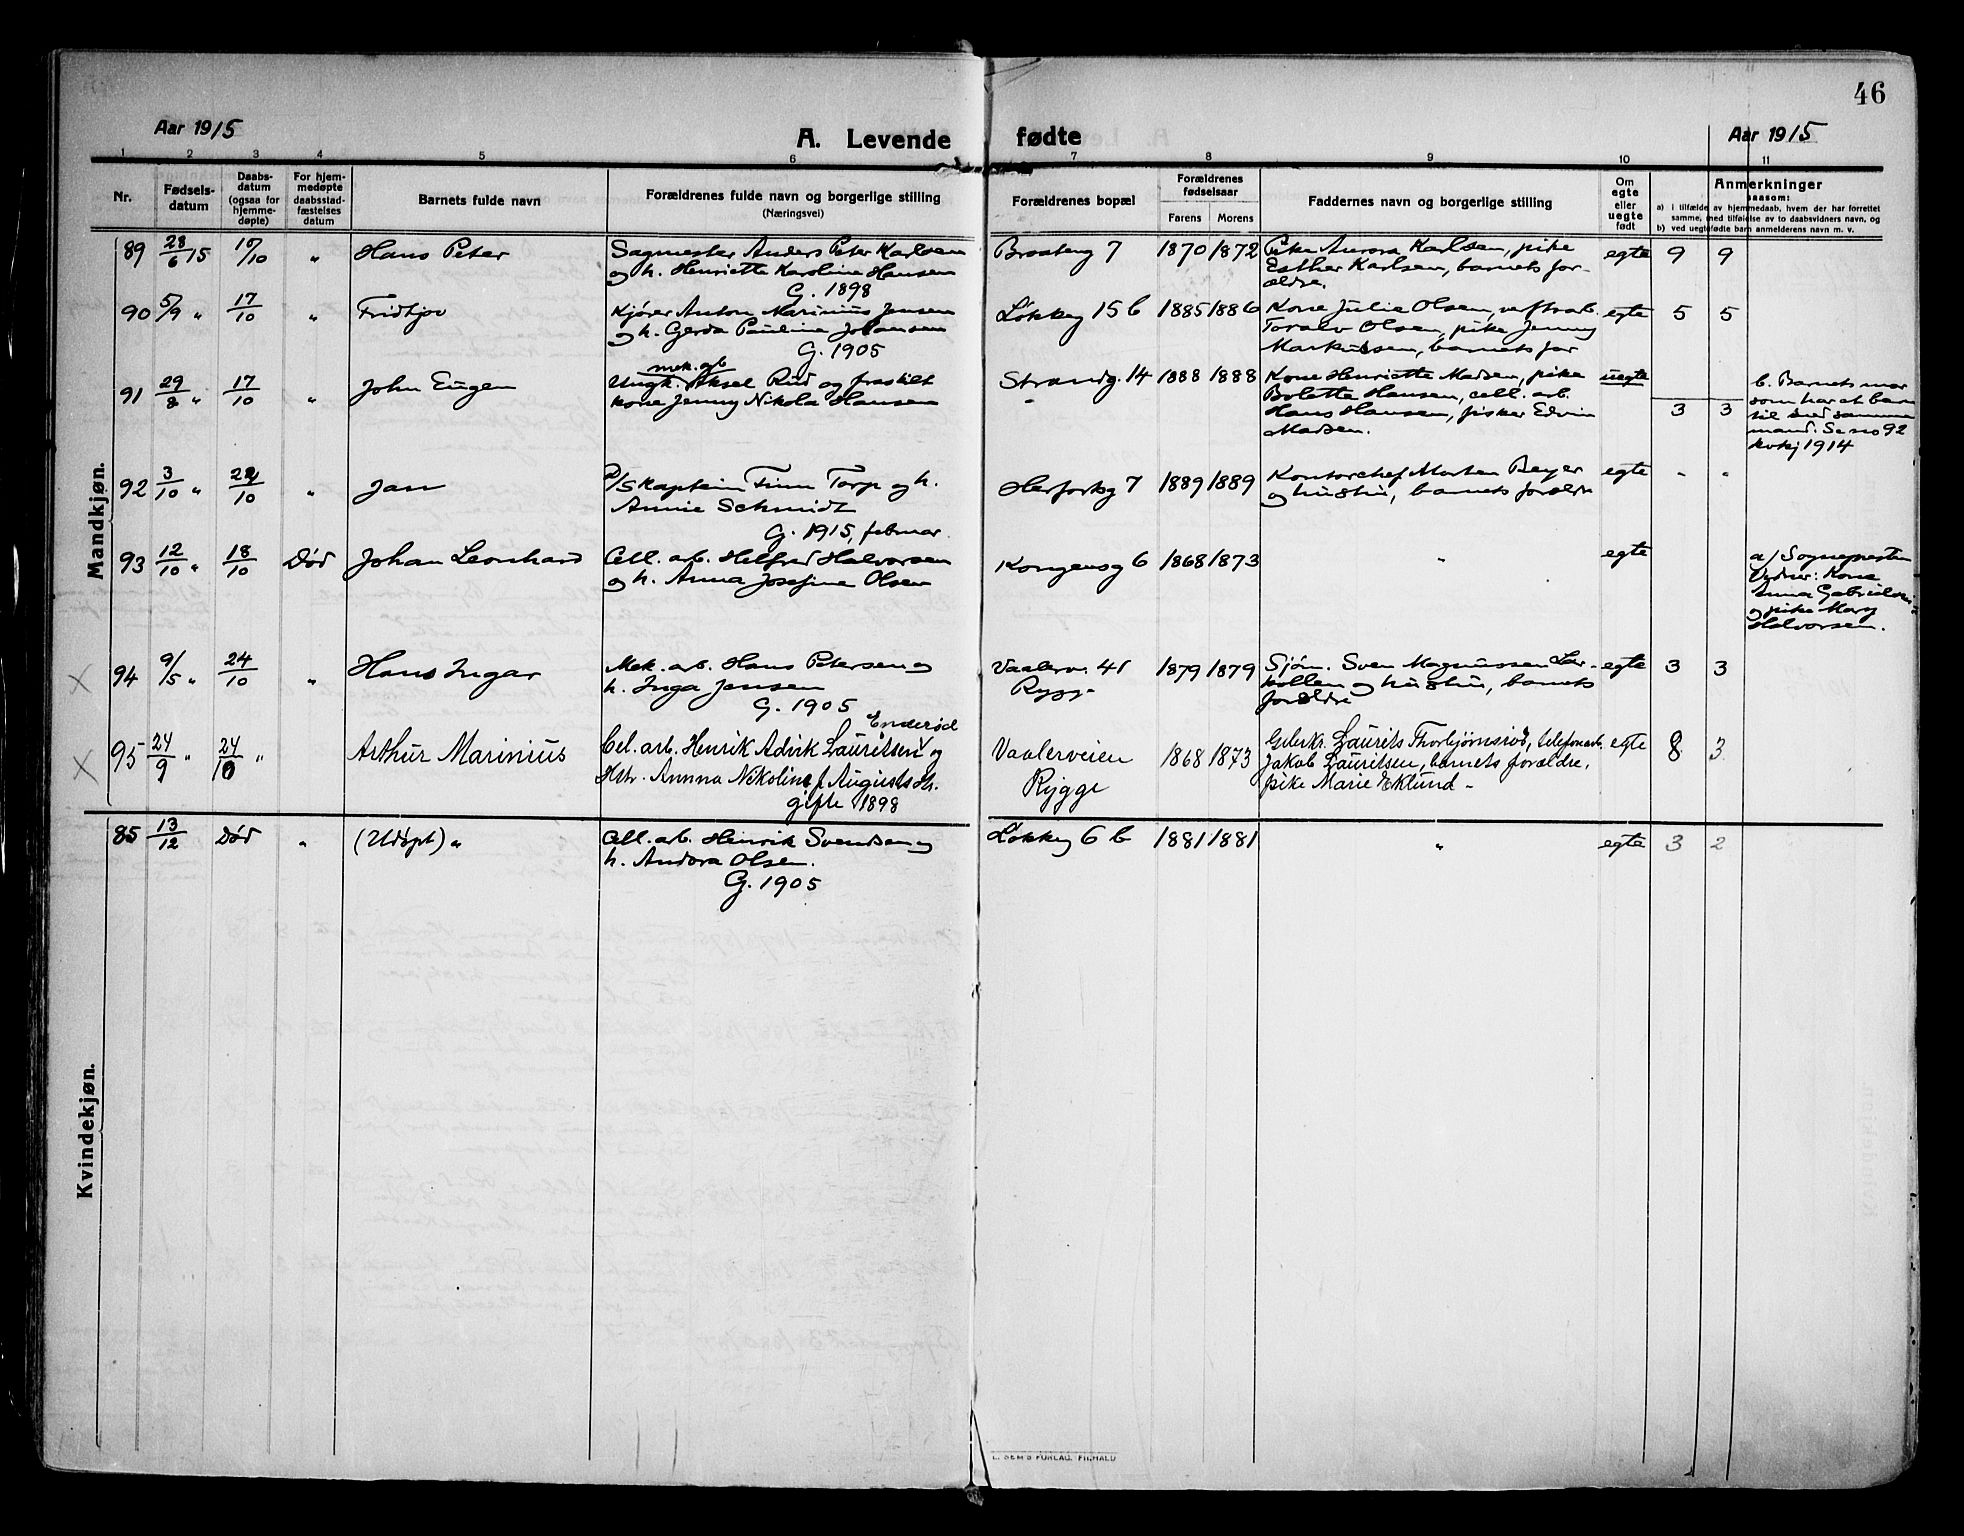 46
Aar 1915
A. Levende fødte
Aar 1915
1 2 3 4 5 6 7 8 9 10 11
Nr.
Fødsels-
datum
Daabs-
datum
(ogsaa for
hjemme-
døpte)
For hjem-
medøpte
daabsstad-
fæstelses
datum
Barnets fulde navn
Forældrenes fulde navn og borgerlige stilling
(Næringsvei)
Forældrenes bopæl
Forældrenes
fødselsaar
Farens Morens
Faddernes navn og borgerlige stilling
Om
egte
eller
uegte
født
Anmerkninger
saasom:
a) i tilfælde av hjemmedaab, hvem der har forrettet
samme, med tilføielse av to daabsvidners navn, og
b) ved uegtefødte barn anmelderens navn m. v.
Mandkjøn.
89 28/6 15 17/10 " Hans Peter
Sagmester Anders Peter Karlsen
og h. Henriette Karoline Hansen
G. 1898
Brosteng 7 1870 1872
Pike Aurora Karlsen, pike
Esther Karlsen, barnets for-
ældre.
egte 9 9
90 5/9 " 17/10 " Fridtjov
Kjører Anton Marinius Jensen
og h. Gerda Pauline Johansen
G. 1905
Løkkeg 15 b 1885 1886
Kone Julie Olsen, verftsarb.
Toralv Olsen, pike Jenny
Markussen, barnets for
egte 5 5
91 29/8 " 17/10 " John Eugen
mek. arb
Ungk. Aksel Rud og fraskilt
kone Jenny Nikola Hansen
Strandg. 14 1888 1888
Kone Henriette Madsen, pike
Bolette Hansen, cell. arb.
Hans Hansen, fisker Edvin
Madsen.
uegte
3 3
b. Barnets mor
som har et barn
til med samme
mand. Se no 92
kvkj 1914
92 3/10 " 22/10 " Jan
D/S kaptein Finn Torp og h.
Annie Schmidt
G. 1915, februar.
Herfordsg 7 1889 1889
Kontorchef Morten Beyer
og hustru, barnets forældre
egte " "
93 12/10 " 18/10 Død Johan Leonhard
Cell. arb. Helfred Halvorsen
og h. Anna Josefine Olsen
Kongensg 6 1868 1873 "
egte
a/ Sognepresten
Vidner: Kone
Anna Gabrielsen
og pike Mary
Halvorsen.
X 94 9/5 " 24/10 " Hans Ingar
Mek. arb. Hans Petersen og
h. Inga Jensen
G. 1905
Vaalerv. 41
Rygge
1879 1879
Sjøm. Sven Magnussen Lar-
kollen og hustru, barnets
forældre
egte 3 3
X 95 24/9 " 24/10 " Arthur Marinius
Enderød
Cel. arb. Henrik Advik Lauritsen og
Hstr. Annna Nikoline f. Augustsdtr.
gifte 1898
Vaalerveien
Rygge
1868 1873
Gdbskr. Laurits Thorbjørnsrød, telefonarb.
Jakob Lauritsen, barnets forældre,
pike Marie Eklund -
egte 8 3
Kvindekjøn.
85 13/12 Død " (Udøpt) "
Cell. arb. Henrik Svendsen og
h. Andora Olsen.
G. 1905
Løkkeg 6 b 1881 1881 "
egte 3 2
E. SEM'S FORLAG, F.HALD